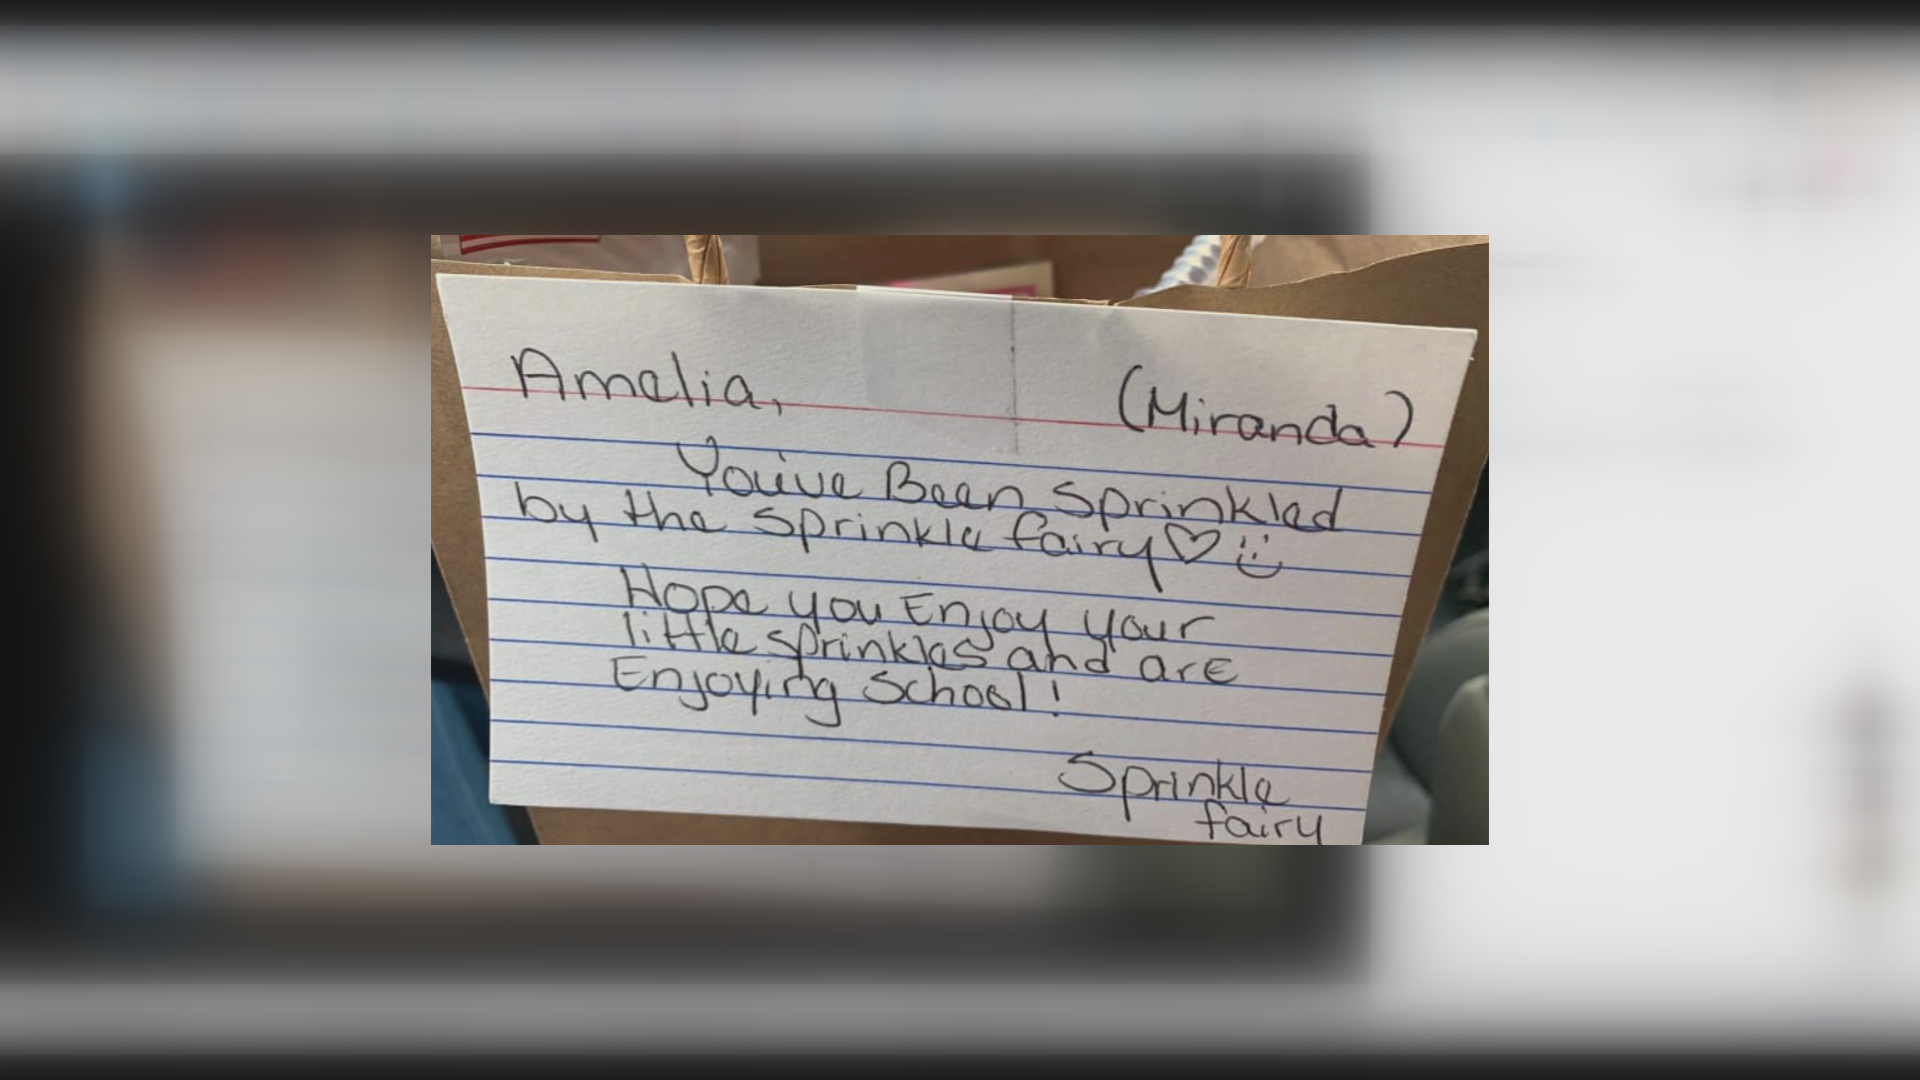 Amelia, (Miranda)
You've Been Sprinkled
by the Sprinkle fairy♡☺
Hope you Enjoy your
little sprinkles and are
Enjoying School!
Sprinkle
fairy